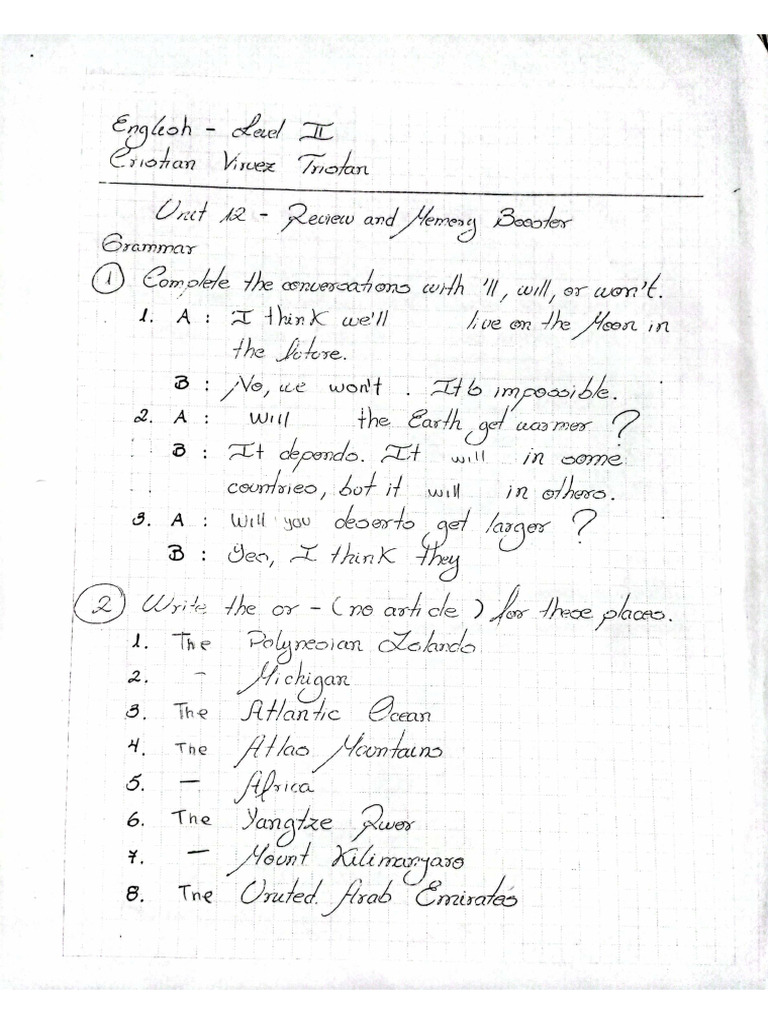 English - Level II
Cristian Viruez Tristan
Unit 12 - Review and Memory Booster
Grammar
1 Complete the conversations with 'll, will, or won't.
1. A : I think we'll live on the Moon in
the future.
B : No, we won't . It's impossible.
2. A : Will the Earth get warmer ?
B : It depends. It will in some
countries, but it will in others.
3. A : Will you deserts get larger ?
B : Yes, I think they
2 Write the or - (no article) for these places.
1. The Polynesian Islands
2. - Michigan
3. The Atlantic Ocean
4. The Atlas Mountains
5. - Africa
6. The Yangtze River
7. - Mount Kilimanyaro
8. The United Arab Emirates